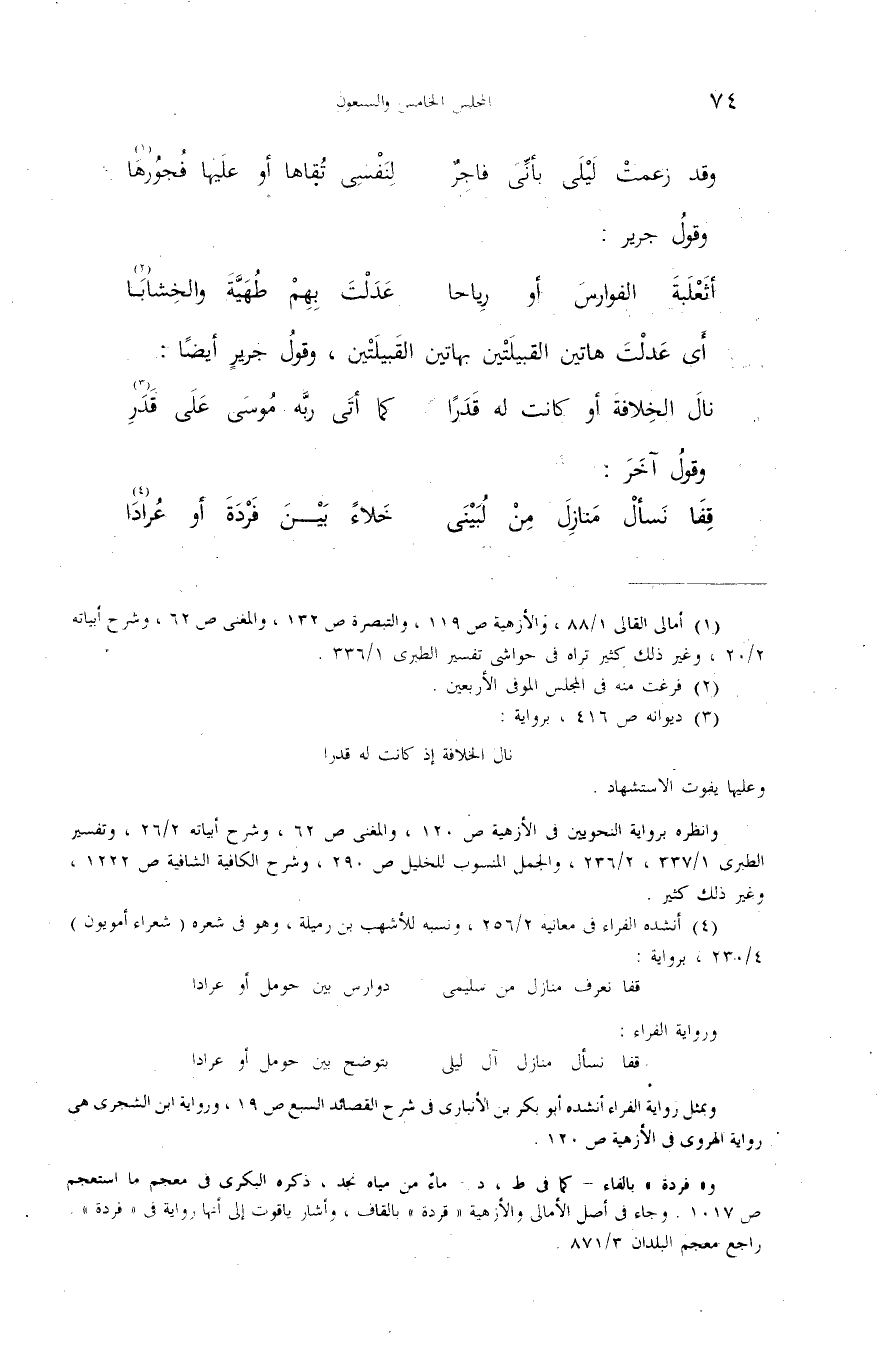 ٧٤ المجلس الخامس والسبعون
وقد زعمتْ لَيْلَى بأنِّىَ فاجِرٌ لِنَفْسِى تُقاها أو علَيها فُجُورُهَا (١)
وقولُ جرير :
أثَعْلَبةَ الفوارسَ أو رِياحا عَدَلْتَ بِهِمْ طُهَيَّةَ والخِشابَا (٢)
أَى عَدلْتَ هاتين القبيلَتْين بهاتين القَبيلَتْين ، وقولُ جريرٍ أيضًا :
نالَ الخِلافةَ أو كانت له قَدَرًا كما أتَى ربَّه مُوسَى عَلَى قَدَرِ (٣)
وقولُ آخَرَ :
قِفَا نَسألْ مَنازِلَ مِنْ لُبَيْنَى خَلاءً بَيْــنَ فَرْدَةَ أو عُرادَا (٤)
(١) أمالى القالى ٨٨/١ ، والأزهية ص ١١٩ ، والتبصرة ص ١٣٢ ، والمغنى ص ٦٢ ، وشرح أبياته
٢٠/٢ ، وغير ذلك كثير تراه فى حواشى تفسير الطبرى ٣٣٦/١ .
(٢) فرغت منه فى المجلس الموفى الأربعين .
(٣) ديوانه ص ٤١٦ ، برواية :
نال الخلافة إذ كانت له قدرا
وعليها يفوت الاستشهاد .
وانظره برواية النحويين فى الأزهية ص ١٢٠ ، والمغنى ص ٦٢ ، وشرح أبياته ٢٦/٢ ، وتفسير
الطبرى ٣٣٧/١ ، ٢٣٦/٢ ، والجمل المنسوب للخليل ص ٢٩٠ ، وشرح الكافية الشافية ص ١٢٢٢ ،
وغير ذلك كثير .
(٤) أنشده الفراء فى معانيه ٢٥٦/٢ ، ونسبه للأشهب بن رميلة ، وهو فى شعره ( شعراء أمويون )
٢٣٠/٤ ، برواية :
قفا نعرف منازل من سليمى دوارس بين حومل أو عرادا
ورواية الفراء :
قفا نسأل منازل آل ليلى بتوضح بين حومل أو عرادا
وبمثل رواية الفراء أنشده أبو بكر بن الأنبارى فى شرح القصائد السبع ص ١٩ ، ورواية ابن الشجرى هى
رواية الهروى فى الأزهية ص ١٢٠ .
و« فردة » بالفاء - كما فى ط ، د - ماءٌ من مياه نجد ، ذكره البكرى فى معجم ما استعجم
ص ١٠١٧ . وجاء فى أصل الأمالى والأزهية « قردة » بالقاف ، وأشار ياقوت إلى أنها رواية فى « فردة » .
راجع معجم البلدان ٨٧١/٣ .